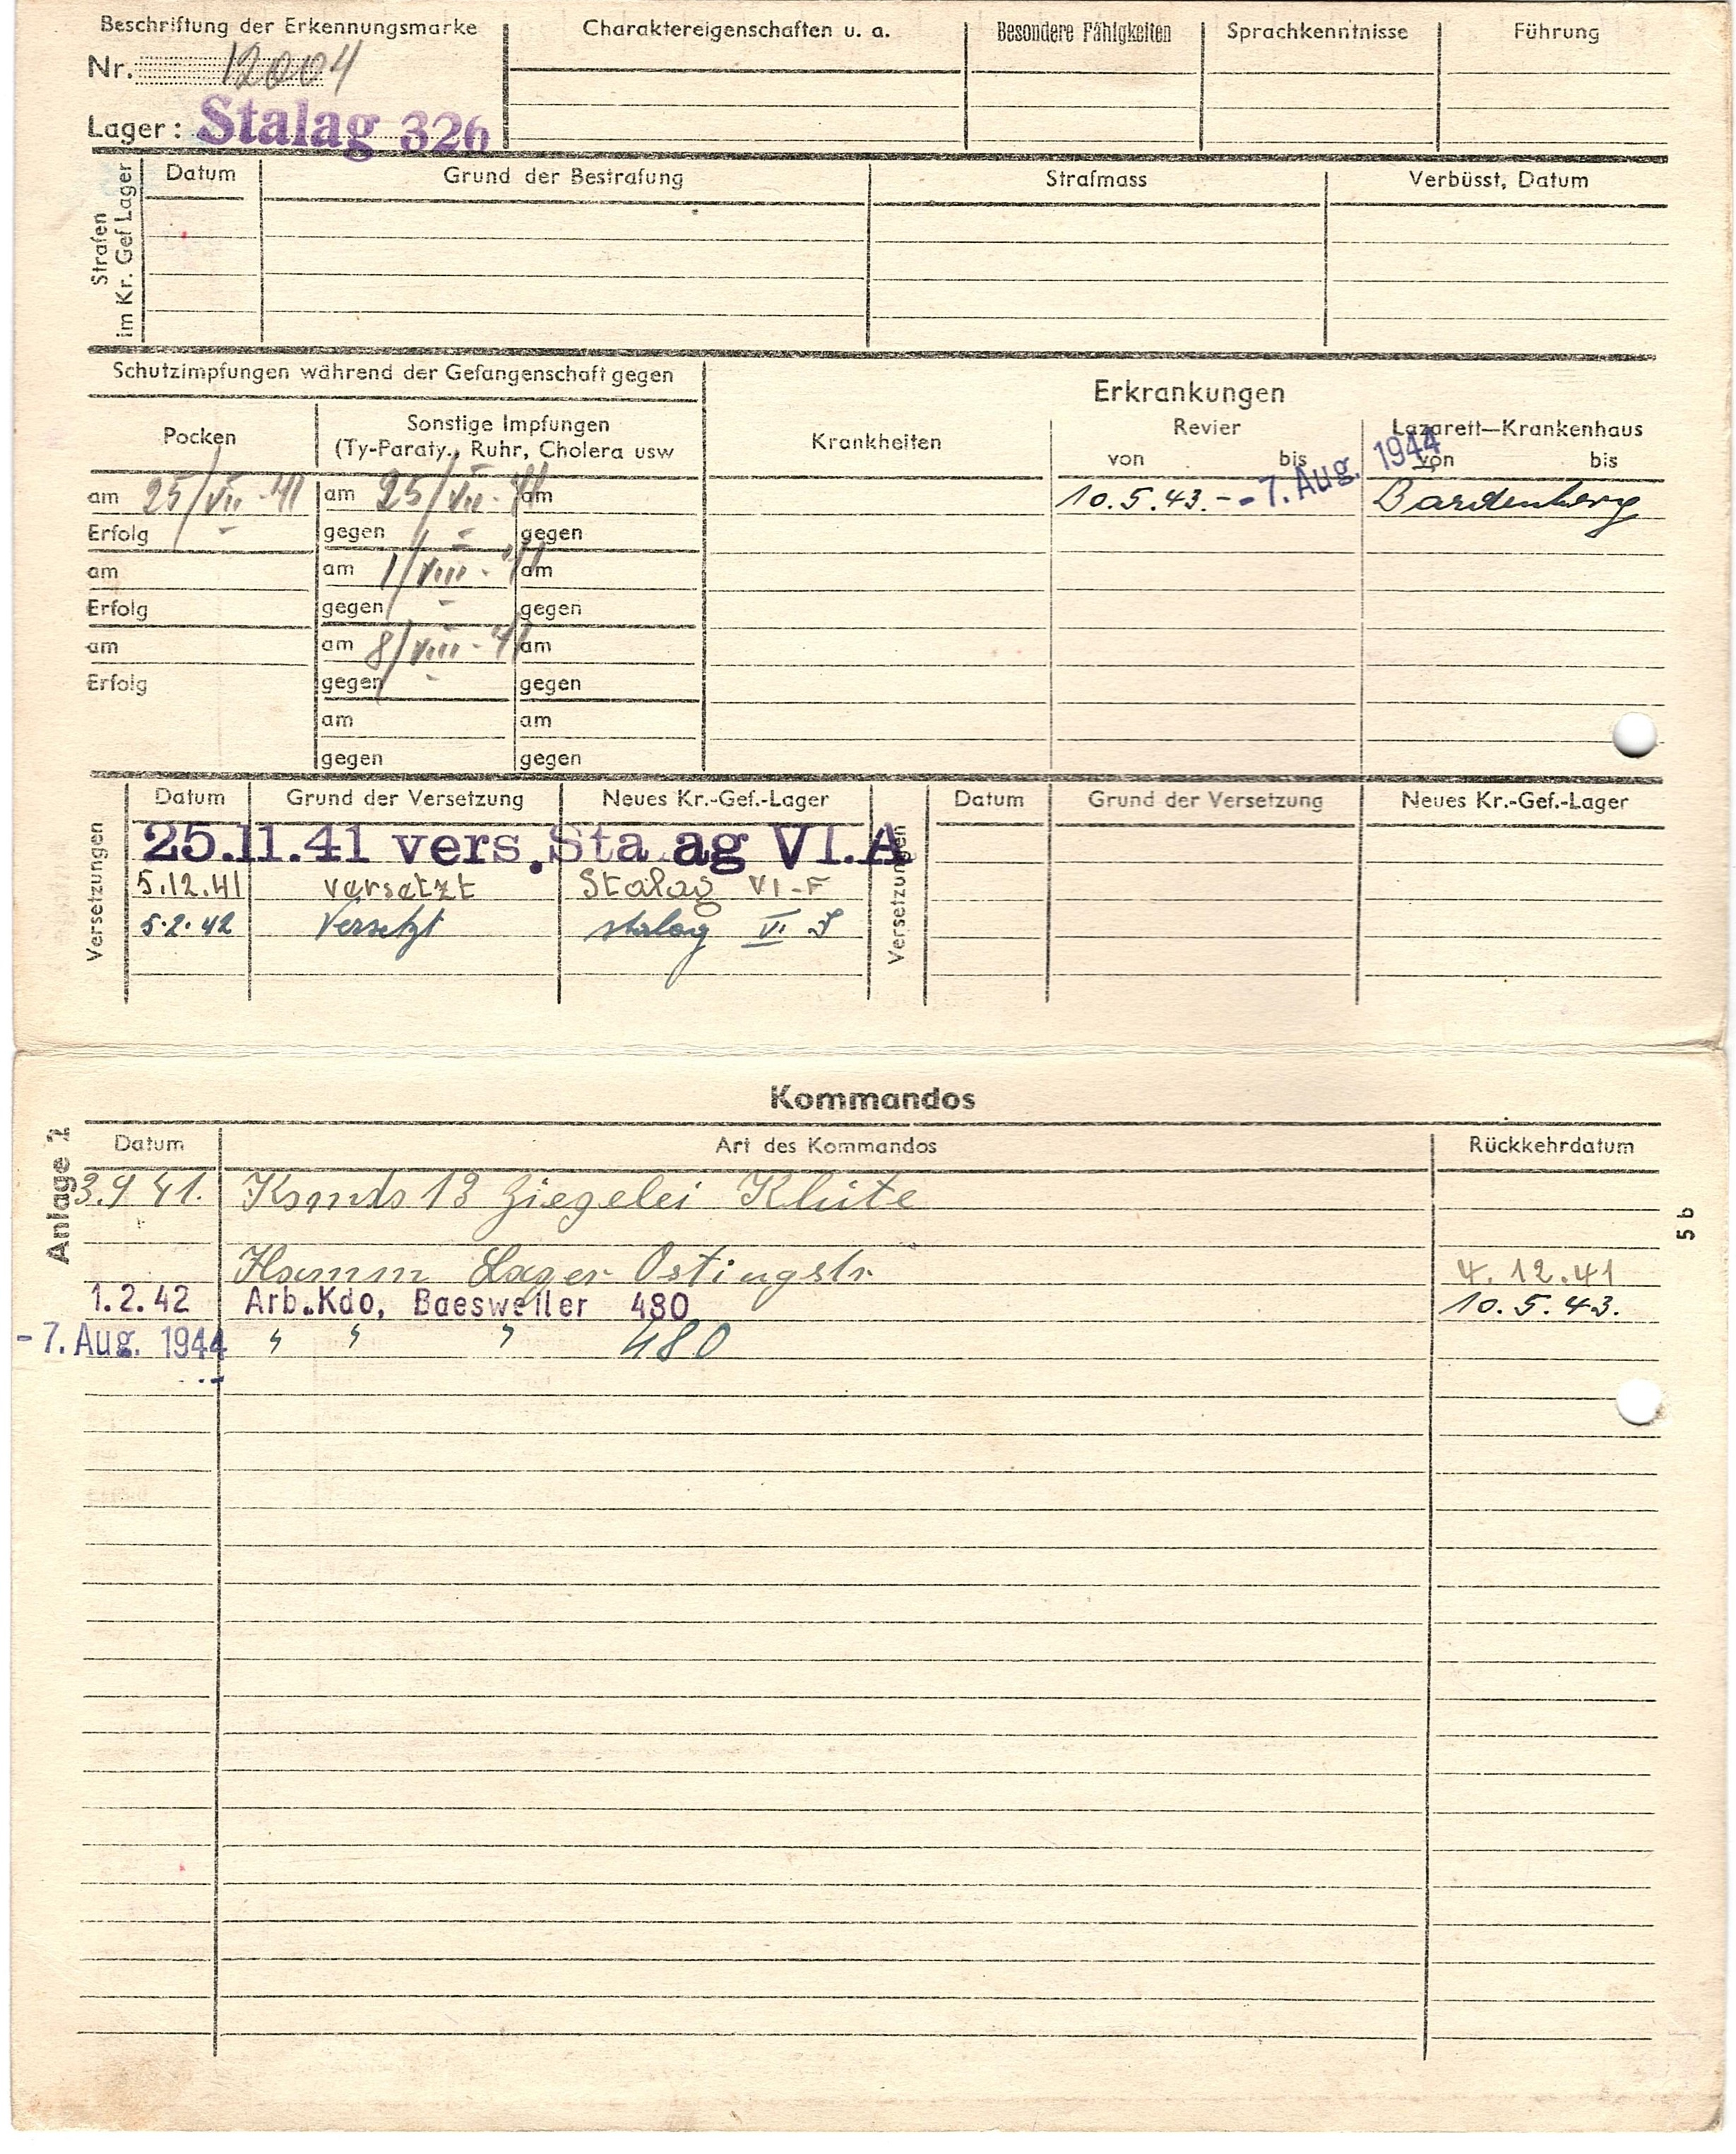 Beschriftung der Erkennungsmarke
Nr. 12004
Lager: Stalag 326
Charaktereigenschaften u. a.
Besondere Fähigkeiten
Sprachkenntnisse
Führung
Strafen
im Kr. Gef Lager
Datum
Grund der Bestrafung
Strafmass
Verbüsst, Datum
Schutzimpfungen während der Gefangenschaft gegen
Pocken
Sonstige Impfungen
(Ty-Paraty., Ruhr, Cholera usw
am 25/VII-41 am 25/VII-41 am
Erfolg gegen gegen
am am 1/VIII-41 am
Erfolg gegen gegen
am am 8/VIII-41 am
Erfolg gegen gegen
am am
gegen gegen
Erkrankungen
Krankheiten
Revier
von bis
Lazarett—Krankenhaus
von bis
10.5.43. - -7. Aug. 1944 Bardenberg
Versetzungen
Datum Grund der Versetzung Neues Kr.-Gef.-Lager
25.11.41 vers. Sta ag VI.A
5.12.41 versetzt Stalag VI-F
5.2.42 Versetzt stalag VI J
Versetzungen
Datum Grund der Versetzung Neues Kr.-Gef.-Lager
Kommandos
Anlage 2
5 b
Datum Art des Kommandos Rückkehrdatum
3.9 41. Komds 13 Ziegelei Klüte
Hamm Lager Ostingstr. 4.12.41
1.2.42 Arb.Kdo, Baesweiler 480 10.5.43.
-7. Aug. 1944 " " " 480